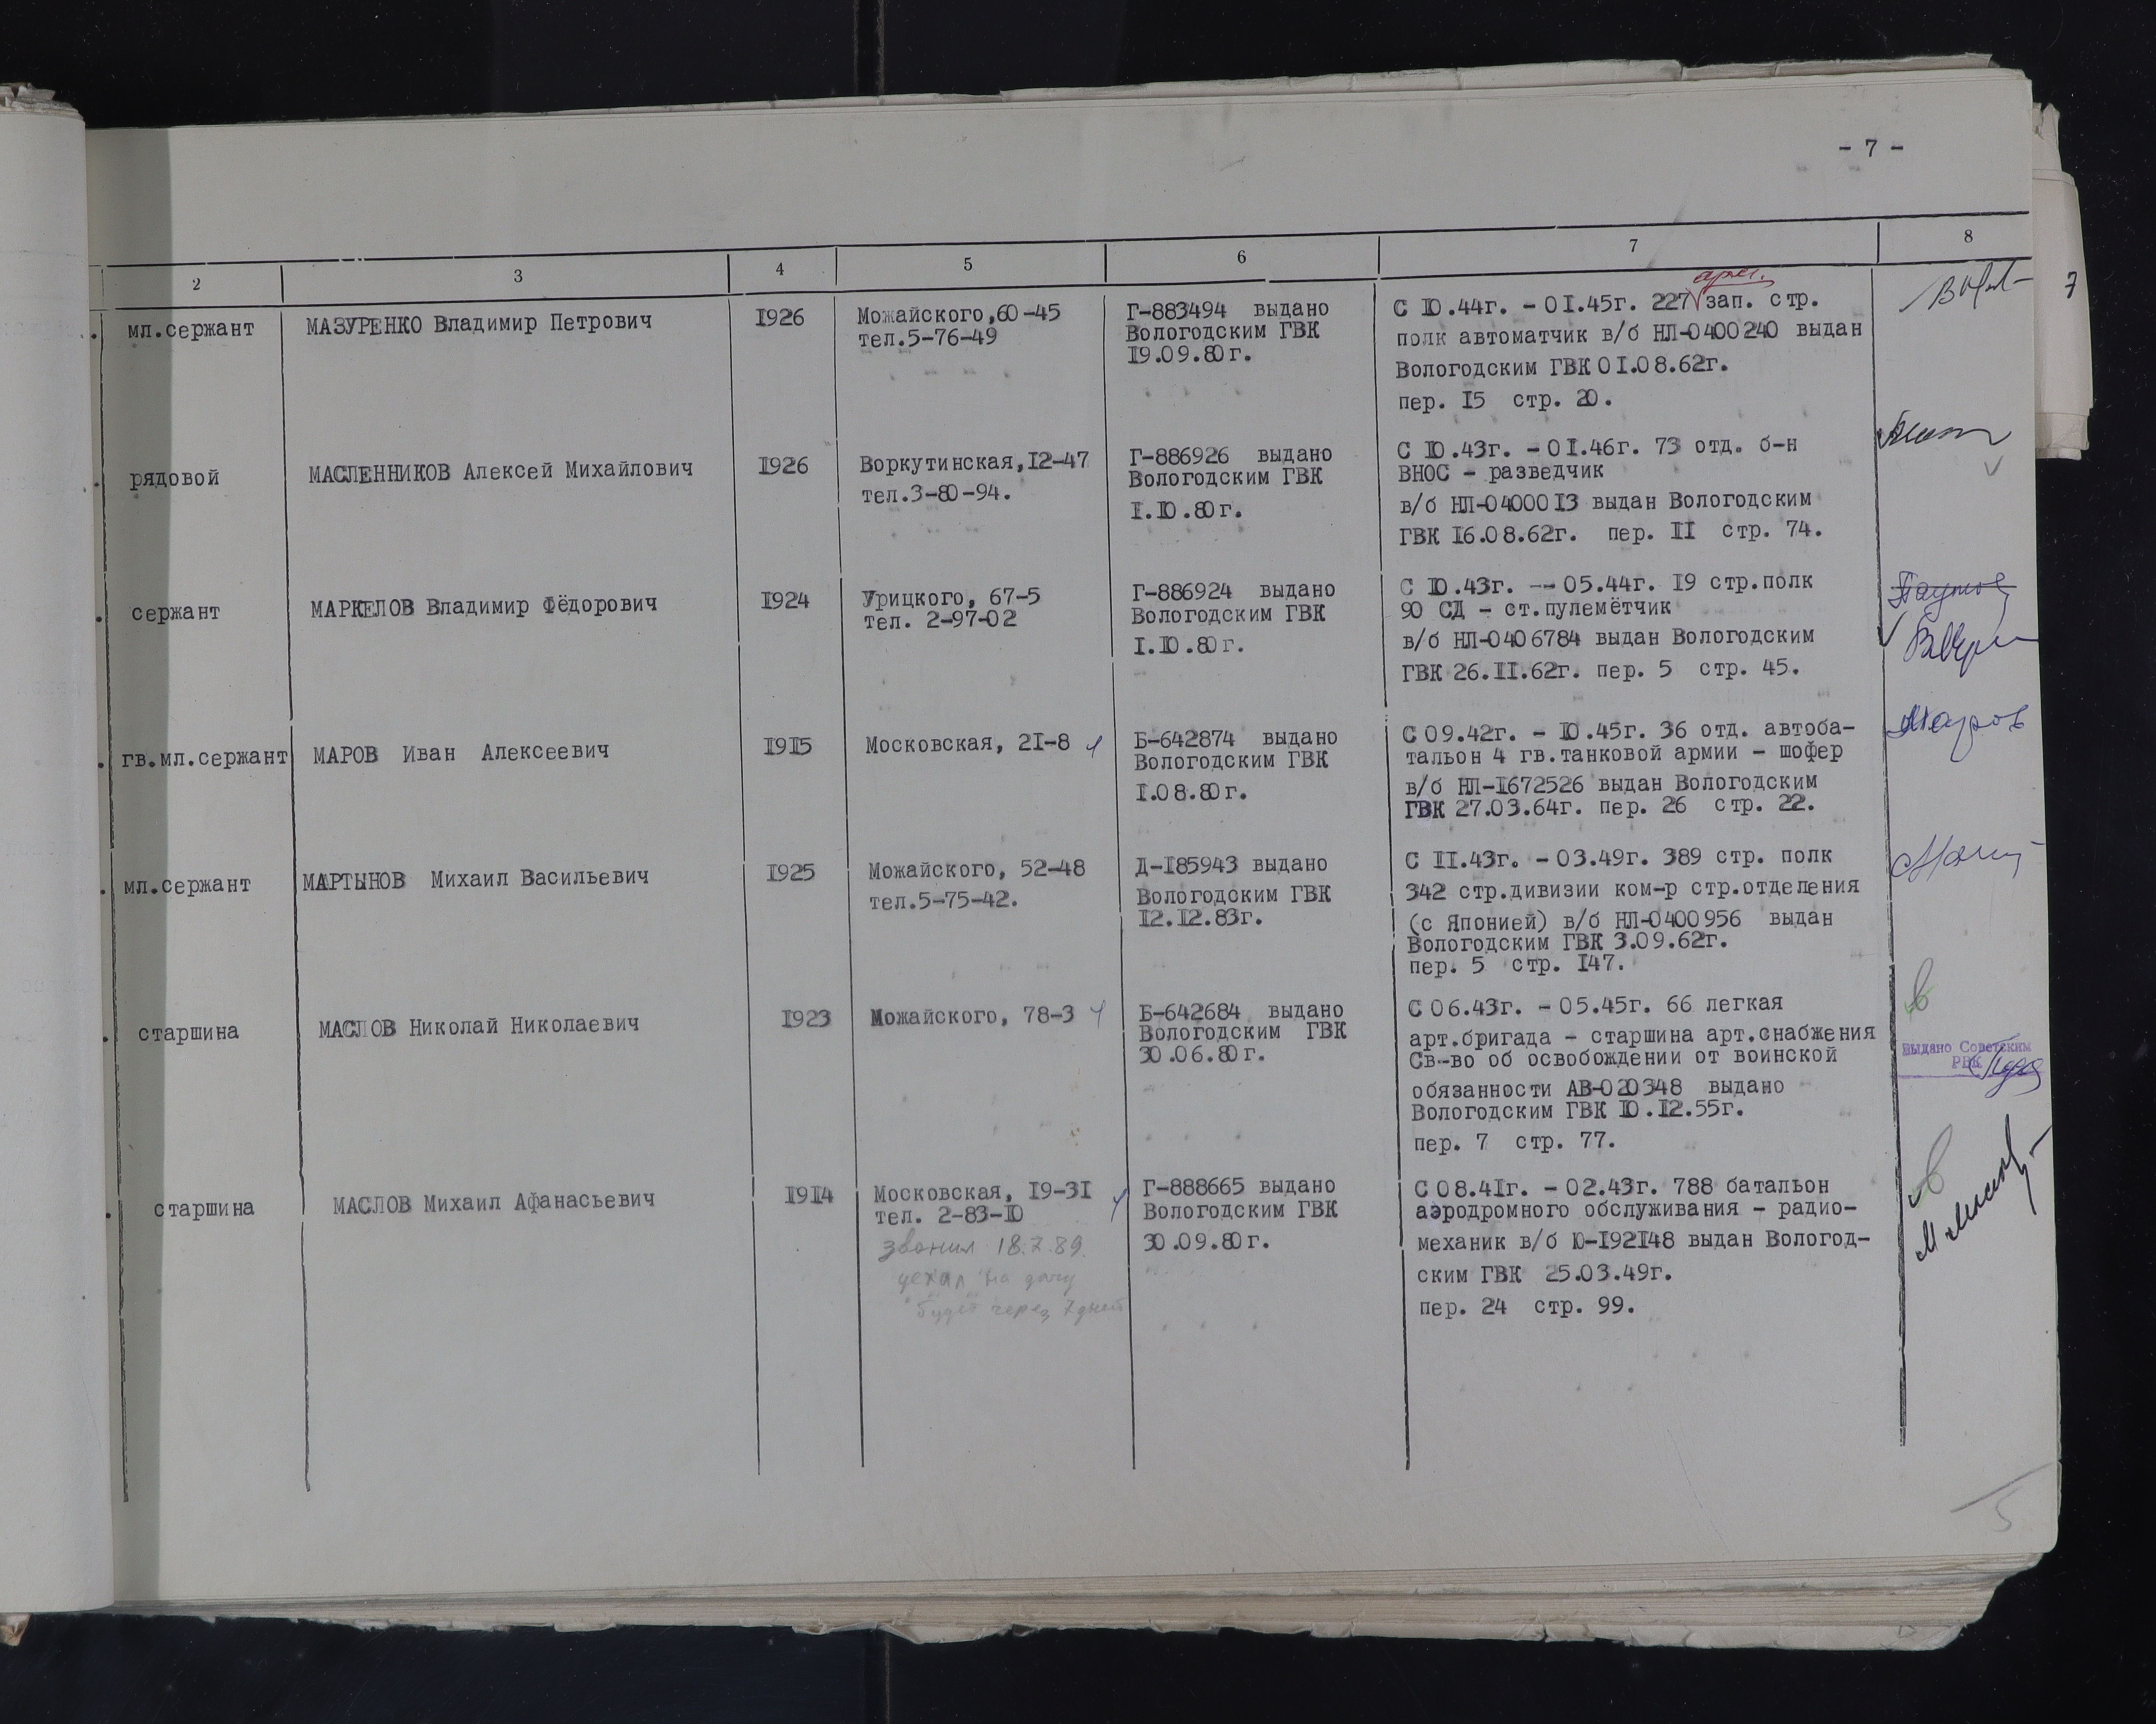 - 7 -
2 3 4 5 6 7 8
7
мл.сержант
МАЗУРЕНКО Владимир Петрович
1926
Можайского,60-45
тел.5-76-49
Г-883494 выдано
Вологодским ГВК
19.09.80г.
С 10.44г. - 01.45г. 227 зап. стр.
полк автоматчик в/б НЛ-0400240 выдан
Вологодским ГВК 01.08.62г.
пер. 15 стр. 20.
рядовой
МАСЛЕННИКОВ Алексей Михайлович
1926
Воркутинская,12-47
тел.3-80-94.
Г-886926 выдано
Вологодским ГВК
1.10.80г.
С 10.43г. - 01.46г. 73 отд. б-н
ВНОС - разведчик
в/б НЛ-0400013 выдан Вологодским
ГВК 16.08.62г. пер. 11 стр. 74.
сержант
МАРКЕЛОВ Владимир Фёдорович
1924
Урицкого, 67-5
тел. 2-97-02
Г-886924 выдано
Вологодским ГВК
1.10.80г.
С 10.43г. -- 05.44г. 19 стр.полк
90 СД - ст.пулемётчик
в/б НЛ-0406784 выдан Вологодским
ГВК 26.11.62г. пер. 5 стр. 45.
гв.мл.сержант
МАРОВ Иван Алексеевич
1915
Московская, 21-8
Б-642874 выдано
Вологодским ГВК
1.08.80г.
С 09.42г. - 10.45г. 36 отд. автоба-
тальон 4 гв.танковой армии - шофер
в/б НЛ-1672526 выдан Вологодским
ГВК 27.03.64г. пер. 26 стр. 22.
мл.сержант
МАРТЫНОВ Михаил Васильевич
1925
Можайского, 52-48
тел.5-75-42.
Д-185943 выдано
Вологодским ГВК
12.12.83г.
С 11.43г. - 03.49г. 389 стр. полк
342 стр.дивизии ком-р стр.отделения
(с Японией) в/б НЛ-0400956 выдан
Вологодским ГВК 3.09.62г.
пер. 5 стр. 147.
старшина
МАСЛОВ Николай Николаевич
1923
Можайского, 78-3
Б-642684 выдано
Вологодским ГВК
30.06.80г.
С 06.43г. - 05.45г. 66 легкая
арт.бригада - старшина арт.снабжения
Св-во об освобождении от воинской
обязанности АВ-020348 выдано
Вологодским ГВК 10.12.55г.
пер. 7 стр. 77.
выдано Советским
РВК
старшина
МАСЛОВ Михаил Афанасьевич
1914
Московская, 19-31
тел. 2-83-10
звонил 18.7.89.
уехал на дачу
будет через 7 дней
Г-888665 выдано
Вологодским ГВК
30.09.80г.
С 08.41г. - 02.43г. 788 батальон
аэродромного обслуживания - радио-
механик в/б Ю-192148 выдан Вологод-
ским ГВК 25.03.49г.
пер. 24 стр. 99.
5